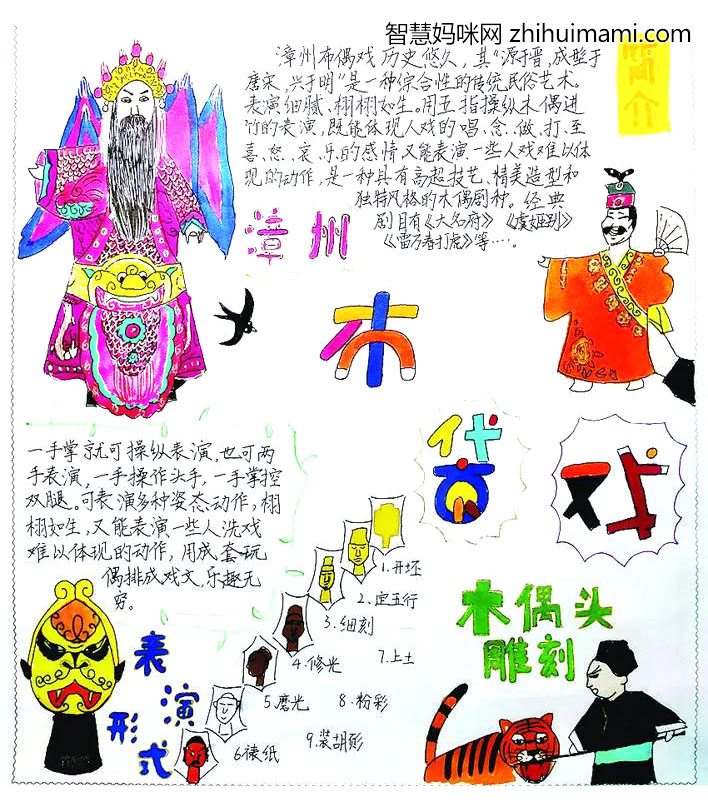 智慧妈咪网 zhihuimami.com
简介
漳州布偶戏历史悠久，其“源于晋，成型于
唐宋，兴于明”是一种综合性的传统民俗艺术。
表演细腻、栩栩如生。用五指操纵木偶进
行的表演，既能体现人戏的唱、念、做、打、至
喜、怒、哀、乐的感情又能表演一些人戏难以体
现的动作，是一种具有高超技艺、精美造型和
独特风格的木偶剧种。经典
剧目有《大名府》《虞姬别》
《雷万春打虎》等…。
漳州
木
偶
戏
一手掌就可操纵表演，也可两
手表演，一手操作头手，一手掌控
双腿。可表演多种姿态动作，栩
栩如生，又能表演一些人洗戏
难以体现的动作，用成套玩
偶排成戏文，乐趣无
穷。
表演
形式
1.开坯
2.定五行
3.细刻
4.修光
5.磨光
6.裱纸
7.上土
8.粉彩
9.装胡须
木偶头
雕刻